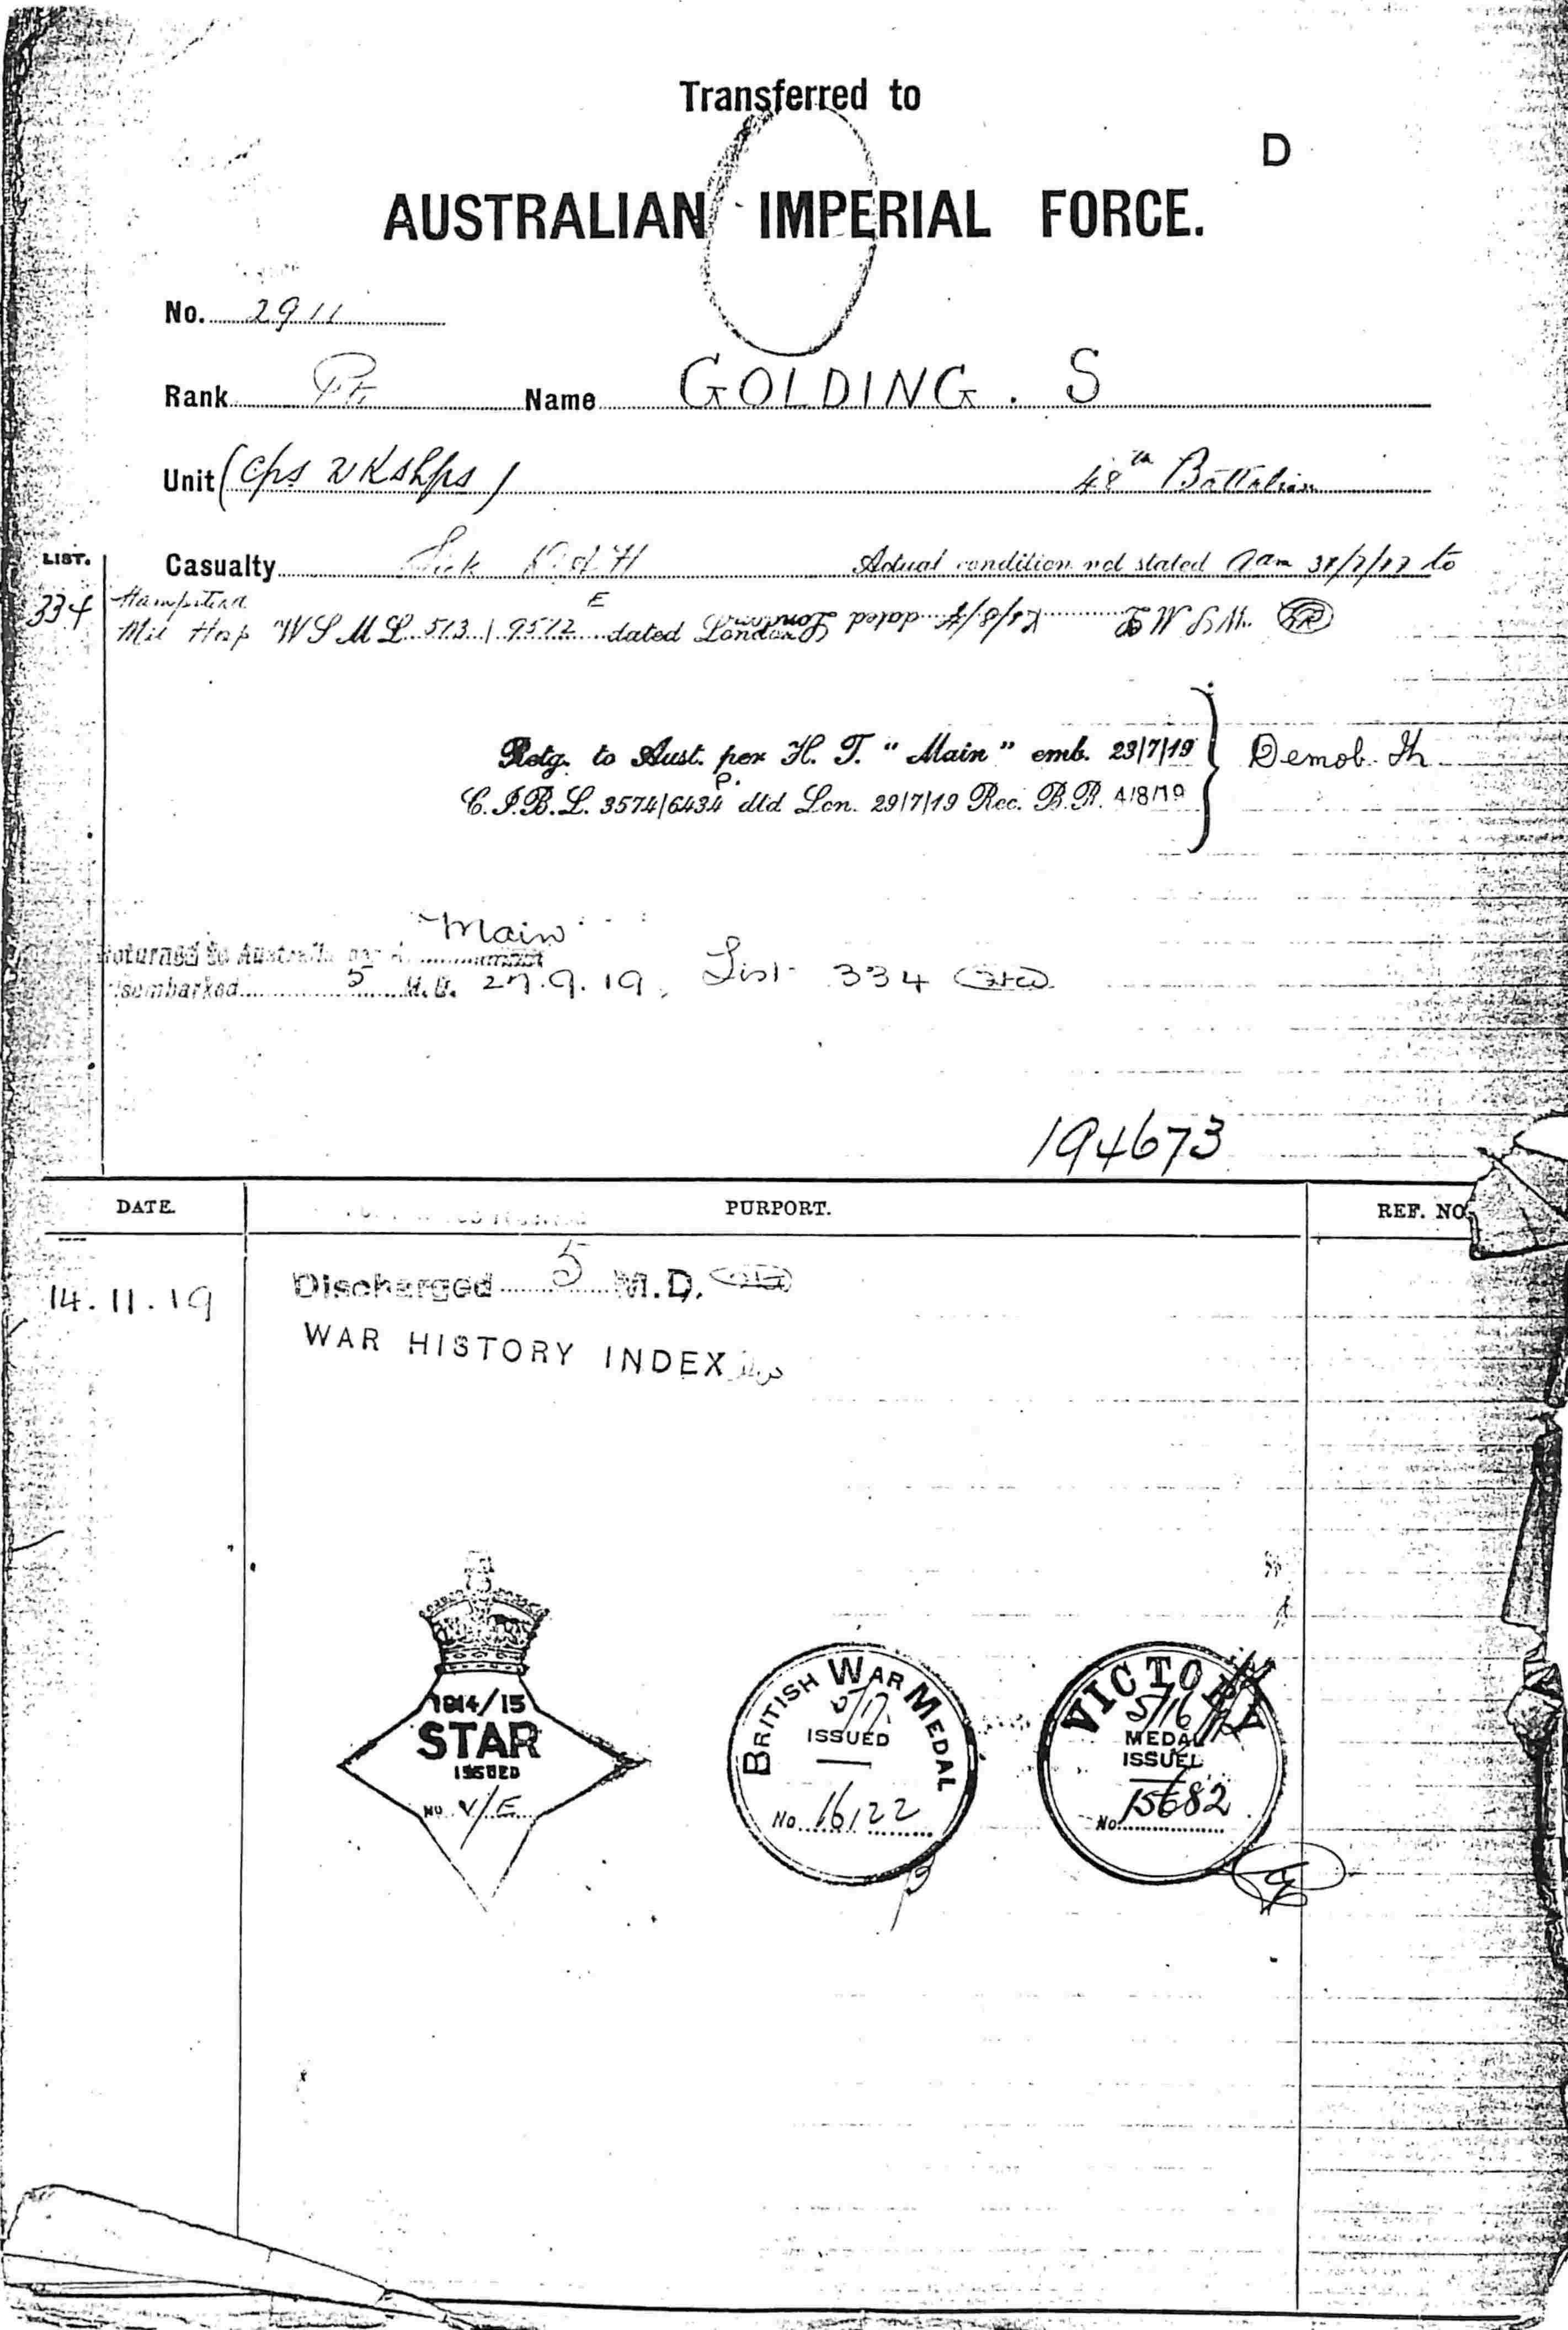 Transferred to
D
AUSTRALIAN IMPERIAL FORCE.
No. 2911
Rank Pte Name GOLDING. S
Unit (Cps Wkshps) 48th Battalion
LIST. Casualty Sick Actual condition not stated to
334 Hampstead
E
Mil Hosp W S M L 513 / 9572 dated London
Retg. to Aust. per H. T. "Main" emb. 23/7/19 } Demob.
P.
C.I.B.L. 3574/6434 dtd Lon. 29/7/19 Rec. B.R. 4/8/19
"Main"
Returned to Australia per
Disembarked 5 M.D. 27.9.19, List 334
194673
DATE. PURPORT. REF. NO.
14.11.19 Discharged 5 M.D.
WAR HISTORY INDEX
1914/15
STAR
ISSUED
No V/E
BRITISH WAR MEDAL
ISSUED
No. 16122
VICTORY
MEDAL
ISSUED
No. 15682